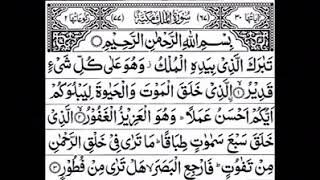 اٰیَاتُهَا ۳۰ (۶۷) سُوْرَةُ الْمُلْكِ مَكِّيَّةٌ (۷۷) رُكُوْعَاتُهَا ۲
بِسْمِ اللّٰهِ الرَّحْمٰنِ الرَّحِيْمِ
تَبٰرَكَ الَّذِيْ بِيَدِهِ الْمُلْكُ وَهُوَ عَلٰى كُلِّ شَيْءٍ
قَدِيْرُ ۝۱ الَّذِيْ خَلَقَ الْمَوْتَ وَالْحَيٰوةَ لِيَبْلُوَكُمْ
اَيُّكُمْ اَحْسَنُ عَمَلًا ؕ وَهُوَ الْعَزِيْزُ الْغَفُوْرُ ۝۲ الَّذِيْ
خَلَقَ سَبْعَ سَمٰوٰتٍ طِبَاقًا ؕ مَا تَرٰى فِيْ خَلْقِ الرَّحْمٰنِ
مِنْ تَفٰوُتٍ ؕ فَارْجِعِ الْبَصَرَ ۙ هَلْ تَرٰى مِنْ فُطُوْرٍ ۝۳